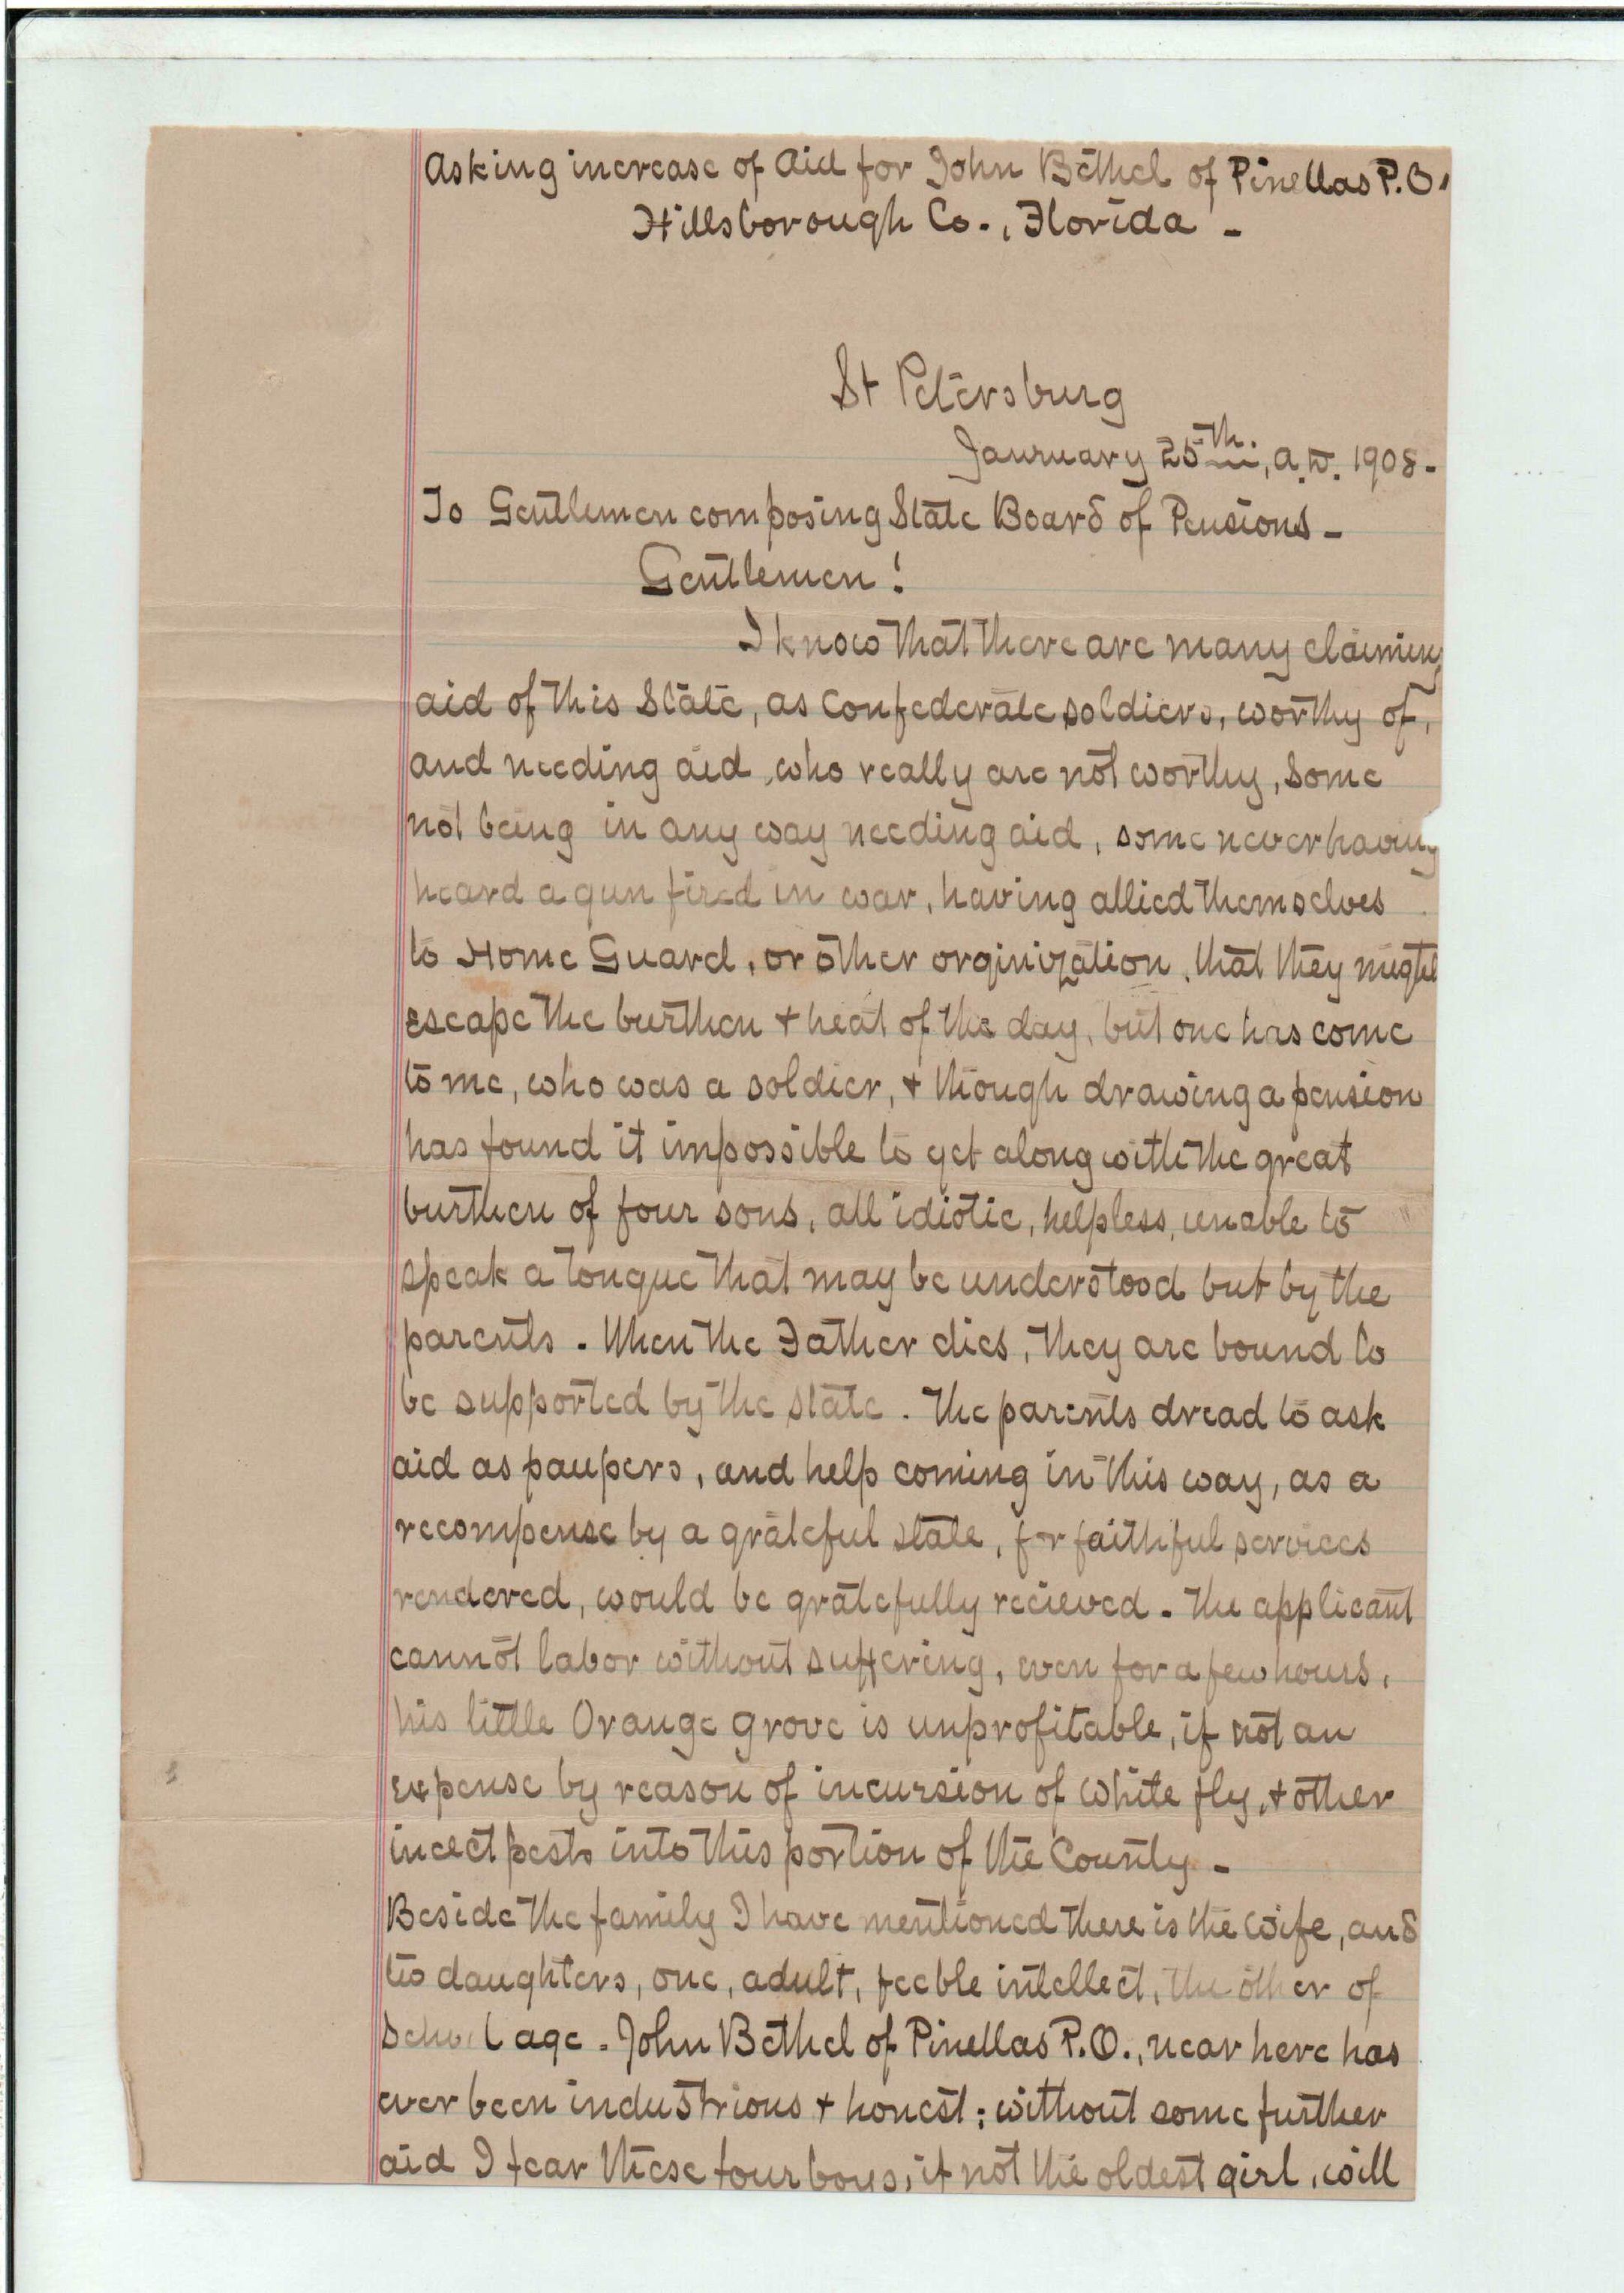 Asking increase of Aid for John Bethel of Pinellas P.O.
Hillsborough Co., Florida -
St Petersburg
Januruary 25th., A.D. 1908-
To Gentlemen composing State Board of Pensions -
Gentlemen!
I know that there are many claiming
aid of this State, as Confederate soldiers, worthy of,
and needing aid, who really are not worthy, some
not being in any way needing aid, some never having
heard a gun fired in war, having allied themselves
to Home Guard, or other orginization, that they might
escape the burthen + heat of the day, but one has come
to me, who was a soldier, + though drawing a pension
has found it impossible to get along with the great
burthen of four sons, all idiotic, helpless, unable to
speak a tongue that may be understood but by the
parents. When the Father dies, they are bound to
be supported by the state. The parents dread to ask
aid as paupers, and help coming in this way, as a
recompense by a grateful state, for faithful services
rendered, would be gratefully recieved. The applicant
cannot labor without suffering, even for a few hours,
his little Orange grove is unprofitable, if not an
expense by reason of incursion of white fly, + other
incect pests into this portion of the County -
Beside the family I have mentioned there is the wife, and
to daughters, one, adult, feeble intellect, the other of
school age. John Bethel of Pinellas P.O., near here has
ever been industrious + honest; without some further
aid I fear these four boys, if not the oldest girl, will